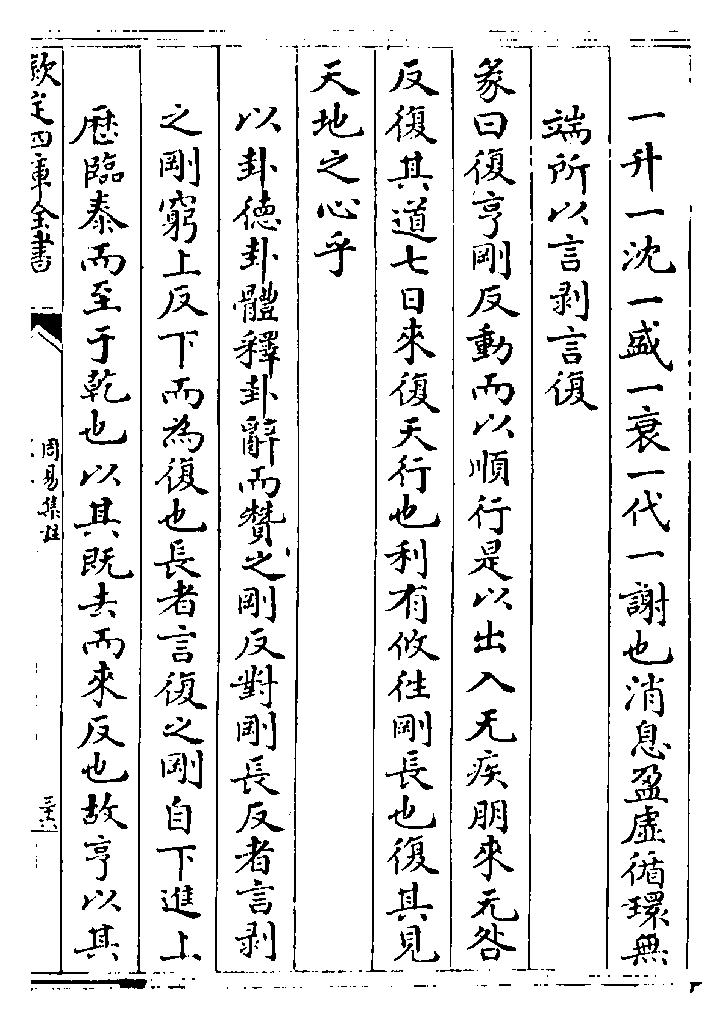 一升一沈一盛一衰一代一謝也消息盈虛循環無
端所以言剥言復
彖曰復亨剛反動而以順行是以出入无疾朋來无咎
反復其道七日來復天行也利有攸往剛長也復其見
天地之心乎
以卦德卦體釋卦辭而贊之剛反對剛長反者言剥
之剛窮上反下而為復也長者言復之剛自下進上
歴臨泰而至于乾也以其既去而來反也故亨以其
欽定四庫全書
周易集註
三六